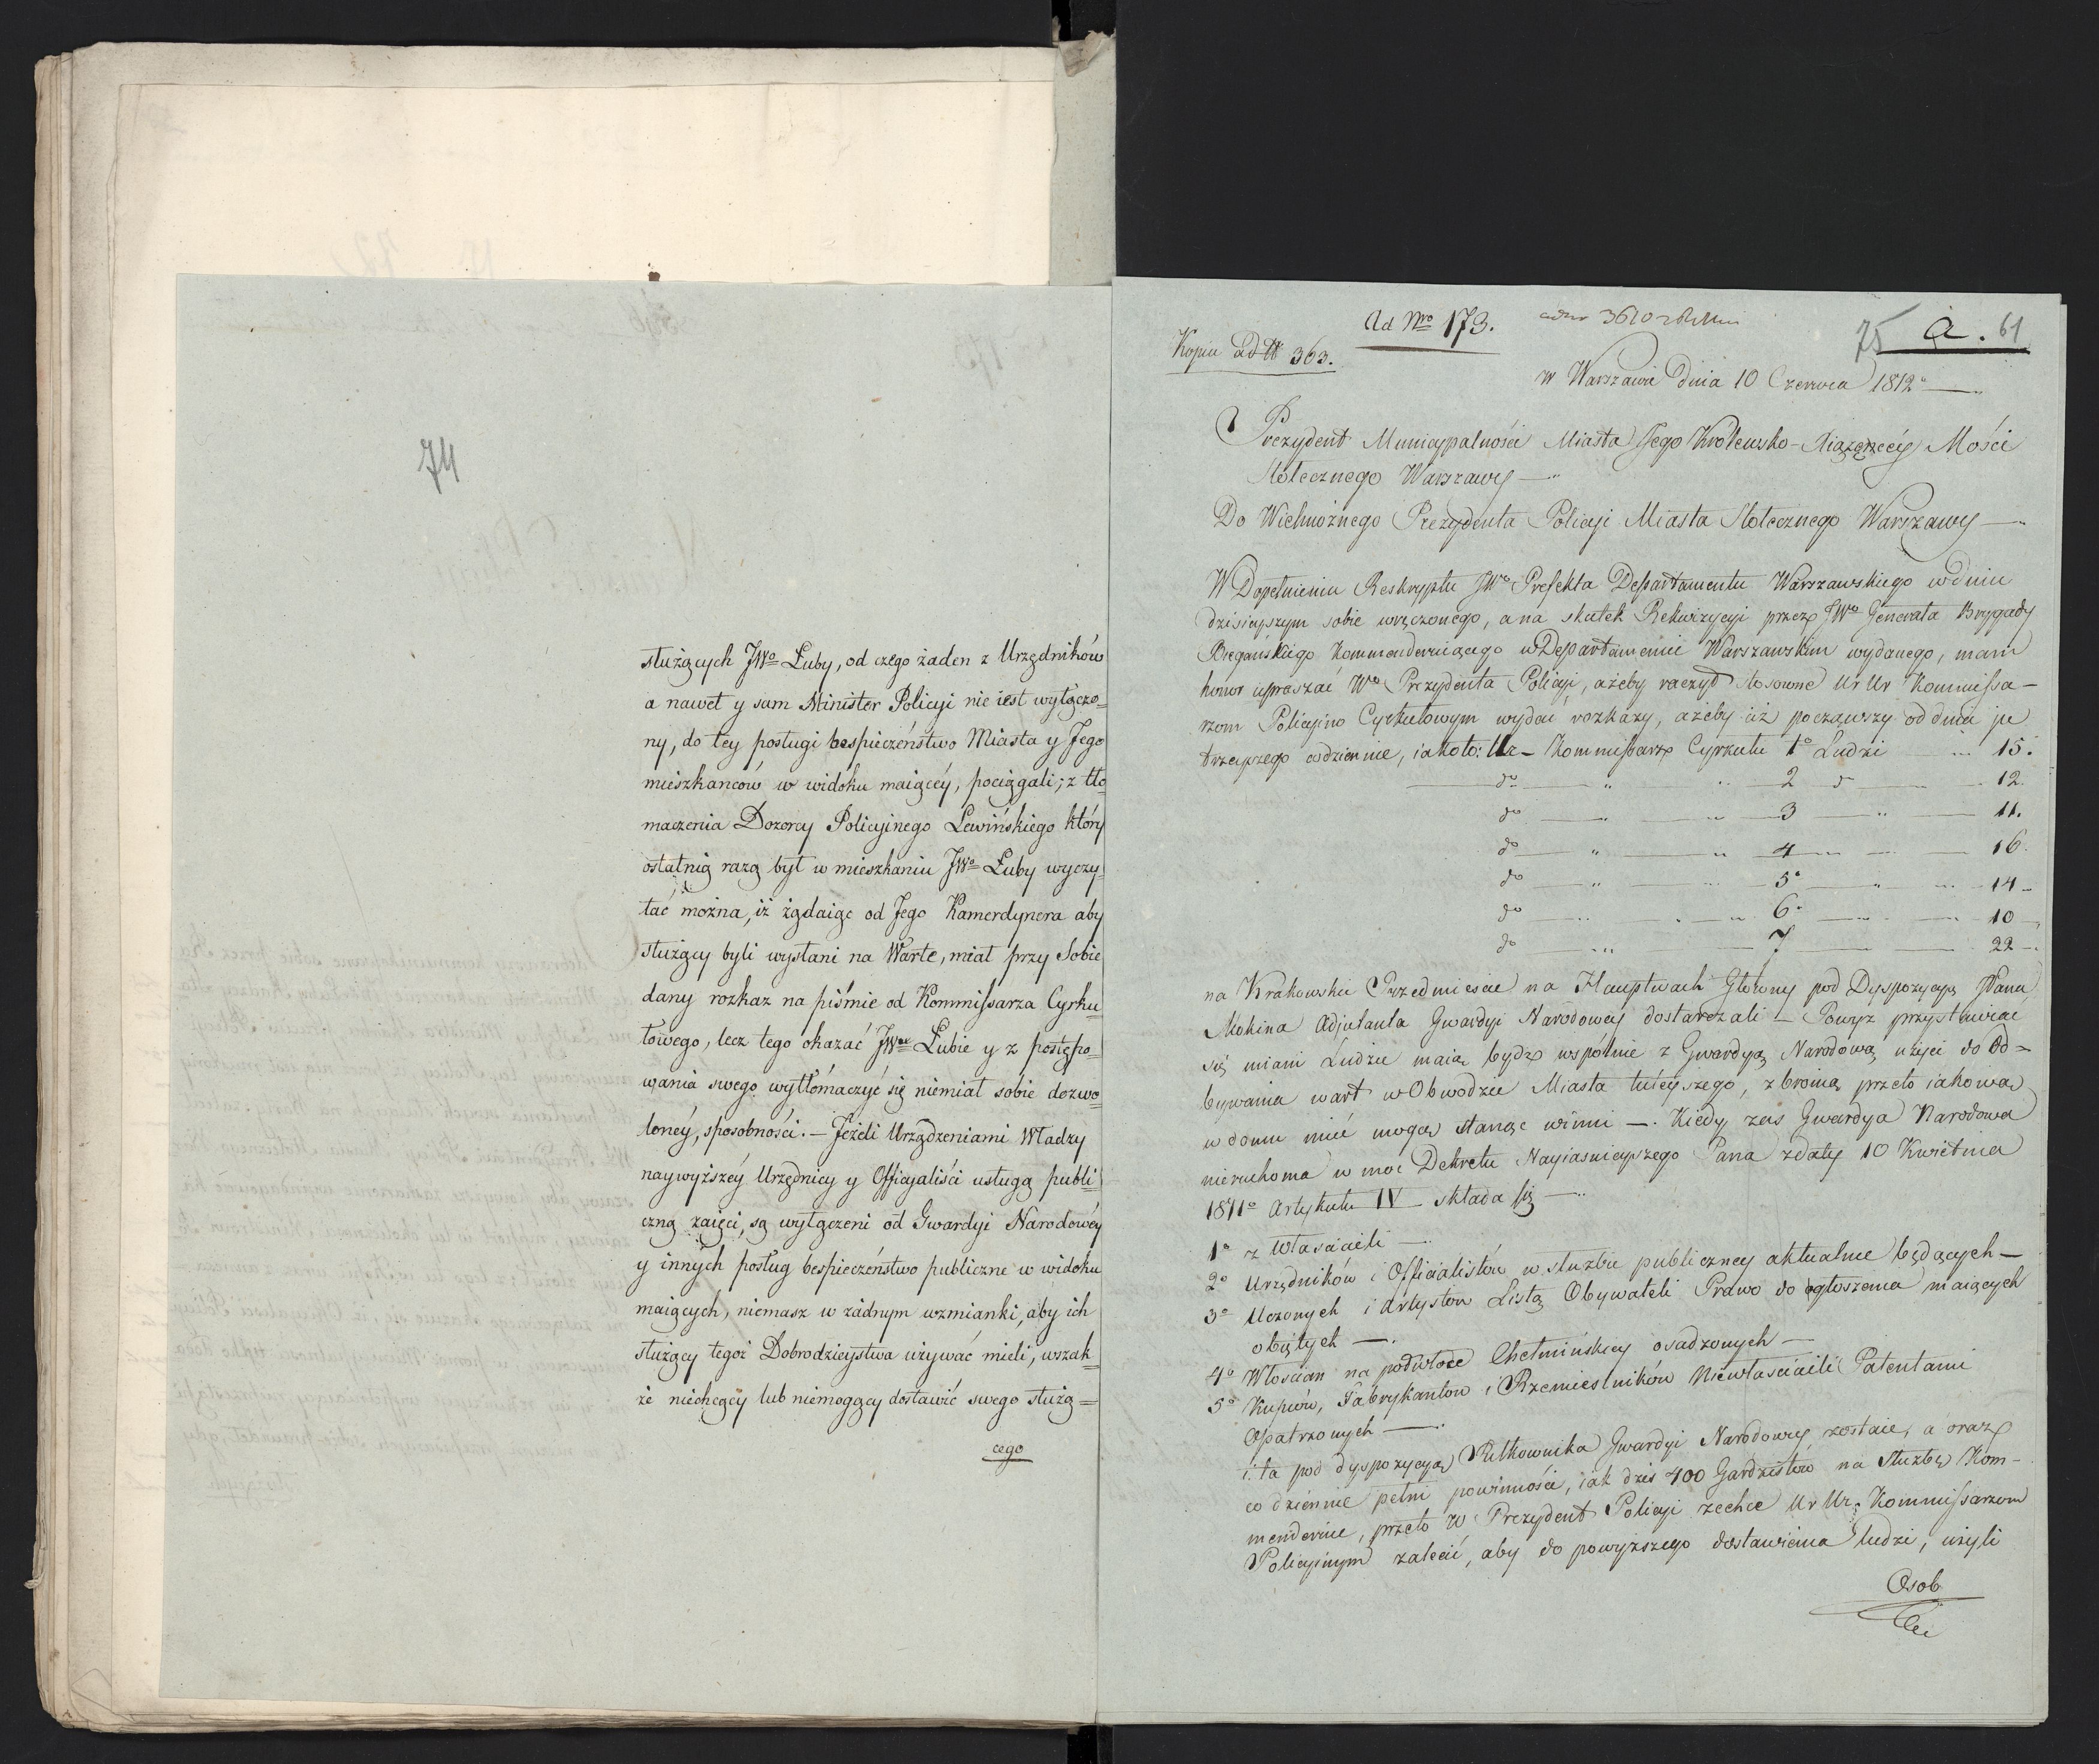 74
służących JWo Łuby, od czego żaden z Urzędników
a nawet y sam Minister Policyi nie iest wyłączo=
ny, do tey posługi bespieczeństwo Miasta y Jego
mieszkancow w widoku maiącéy, pociągali; z tło=
maczenia Dozorcy Policyinego Lewińskiego który
ostatnią razą był w mieszkaniu JWo Łuby wyczy=
tać można, iż żądaiąc od Jego Kamerdynera aby
służący byli wysłani na Wartę, miał przy Sobie
dany rozkaz na piśmie od Kommissarza Cyrku=
łowego, lecz tego okazać JWu Łubie y z postępo=
wania swego wytłómaczyć się niemiał sobie dozwo=
loney, sposobności. — Jeżeli Urządzeniami Władzy
naywyższéy Urzędnicy y Officyaliści usługą publi=
czną zaięci, są wyłączeni od Gwardyi Narodowéy
y innych posług bespieczeństwo publiczne w widoku
maiących, niemasz w żadnym wzmianki, aby ich
służący tegoż Dobrodzieystwa używać mieli, wszak=
że niechcący lub niemogący dostawić swego służą=
cego
Ad Nro 173.
75 a. 61
Kopia ad N 363.
w Warszawie dnia 10 Czerwca 1812o —
Prezydent Municypalności Miasta Jego Krolewsko-Xiążęcéy Mości
Stołecznego Warszawy —
Do Wielmożnego Prezydenta Policyi Miasta Stołecznego Warszawy —
W Dopełnieniu Reskryptu JWo Prefekta Departamentu Warszawskiego w dniu
dzisieyszym sobie wręczonego, a na skutek Rekwizycyi przez JWo Generała Brygady
Biegańskiego Kommenderuiącego w Departamencie Warszawskim wydanego, mam
honor upraszać Wo Prezydenta Policyi, ażeby raczył stosowne Ur Ur Kommissa-
rzom Policyino Cyrkułowym wydać rozkazy, ażeby iż począwszy od dnia ju
trzeyszego codziennie, iakoto: Ur- Kommissarz Cyrkułu 1o Ludzi — 15.
do — " — 2 d — 12.
do — " — 3 — " — 11.
do — " — 4 — 16.
do — " — 5o — " — 14 -
do — " — 6o — 10 -
do — " — 7 — 22 -
na Krakowskie Przedmiescie na Hauptwach Główny pod Dyspozycyą JPana
Mokina Adjutanta Gwardyi Narodowey dostarczali — Powyż przystawiać
się miani Ludzie maią bydź wspólnie z Gwardyą Narodową użyci do Od=
bywania wart w Obwodzie Miasta tuteyszego, z bronią przeto iakową
w domu mieć mogą stanąć winni —. Kiedy zas Gwardya Narodowa
nieruchoma w moc Dekretu Nayiasnieyszego Pana z daty 10 Kwietnia
1811o Artykułu IV składa się —
1o z Właścicieli —
2o Urzędników i Officialistów w służbie publiczney aktualnie będących —
3o Uczonych i Artystow Listą Obywateli Prawo do ogłoszenia maiących
obiętych —.
4o Włoscian na podwłoce Chełmińskiey osadzonych —
5o Kupców, Fabrykantow i Rzemieslników Niewłaścicieli Patentami
Opatrzonych —.
i ta pod dyspozycyą Pułkownika Gwardyi Narodowey zostaie, a oraz
codziennie pełni powinności, iak dzis 400 Gardzistów na Służbę Kom-
menderuie, przeto W Prezydent Policyi zechce Ur Ur: Kommissarzom
Policyinym zalecić, aby do powyższego dostawienia ludzi, użyli
Osob